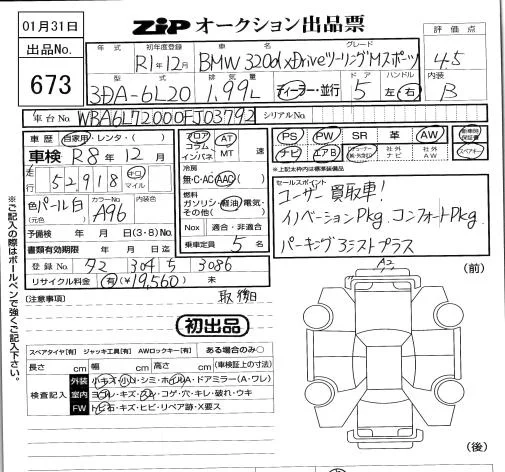 01月31日
ZIP オークション出品票
出品No.
673
年式 初年度登録 車名 グレード
R1年12月 BMW 320d xDriveツーリングMスポーツ
型式 排気量 ドア ハンドル
3DA-6L20 1.99L ディーラー・並行 5 左・右
評価点
4.5
内装
B
車台No. WBA6L72000FJ03792 シリアルNo.
車歴 自家用・レンタ・( )
車検 R8年12月
走行 52,918 キロ マイル
色 パール白 (元色) カラーNo. A96 内装色
予備検 年 月 日(3・8)No.
書類有効期限 年 月 日迄
登録No. 72 304 5 3086
リサイクル料金 有(¥19,560) 未
フロア コラム インパネ AT MT 速
冷房
無・C・AC・AAC( )
燃料
ガソリン・軽油・電気・その他( )
Nox 適合・非適合
乗車定員 5名
PS PW SR 革 AW 新車時保証書
ナビ エアB 社外ナビ 社外AW
*上記太枠内は標準装備品
セールスポイント
ユーザー買取車!
イノベーションPkg. コンフォートPkg.
パーキングアシストプラス
(注意事項)
初出品
※ご記入の際はボールペンで強くご記入下さい。
スペアタイヤ[有] ジャッキ工具[有] AWロックキー[有] ある場合のみ○
長さ cm 幅 cm 高さ cm (車検証上の寸法)
検査記入
外装 小キズ・小凹・シミ・ホイルA・ドアミラー(A・ワレ)
室内 ヨゴレ・キズ・スレ・コゲ・穴・キレ・破れ・ウキ
FW トビ石・キズ・ヒビ・リペア跡・X要ス
A2
(前)
(後)